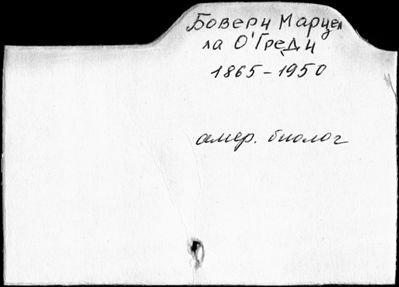 Бовери Марцел
ла О'Греди
1865-1950
амер. биолог